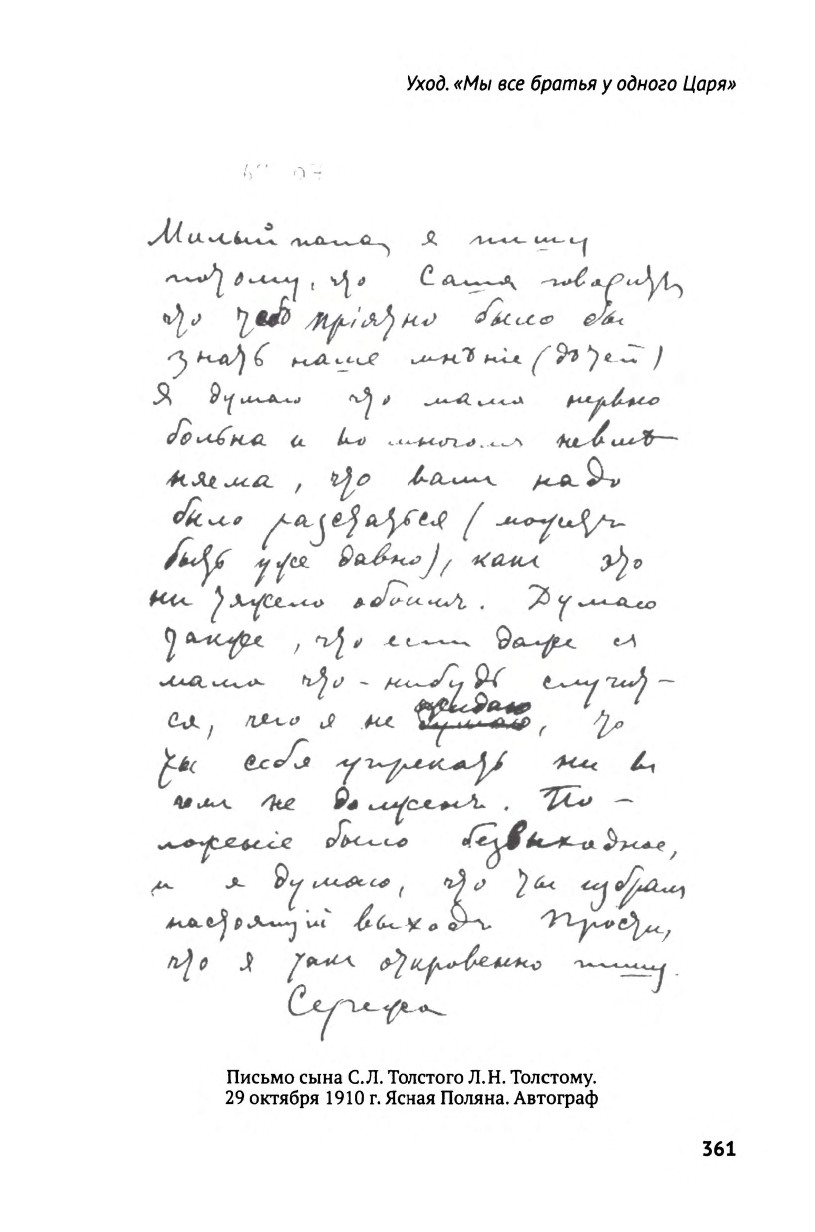 Уход. «Мы все братья у одного Царя»
Милый папа, я пишу
потому, что Саша говоритъ,
что тебѣ пріятно было бы
знать наше мнѣніе (дѣтей)
Я думаю что мама нервно
больна и во многомъ невмѣ
няема, что вамъ надо
было разстаться (можетъ
быть уже давно), какъ это
ни тяжело обоимъ. Думаю
также, что если даже съ
мама что-нибудь случит-
ся, чего я не ожидаю думаю, то
ты себя упрекать ни въ
чемъ не долженъ. По-
ложеніе было безвыходное,
и я думаю, что ты избралъ
настоящій выходъ Прости,
что я такъ откровенно пишу.
Сережа
Письмо сына С.Л. Толстого Л.Н. Толстому.
29 октября 1910 г. Ясная Поляна. Автограф
361